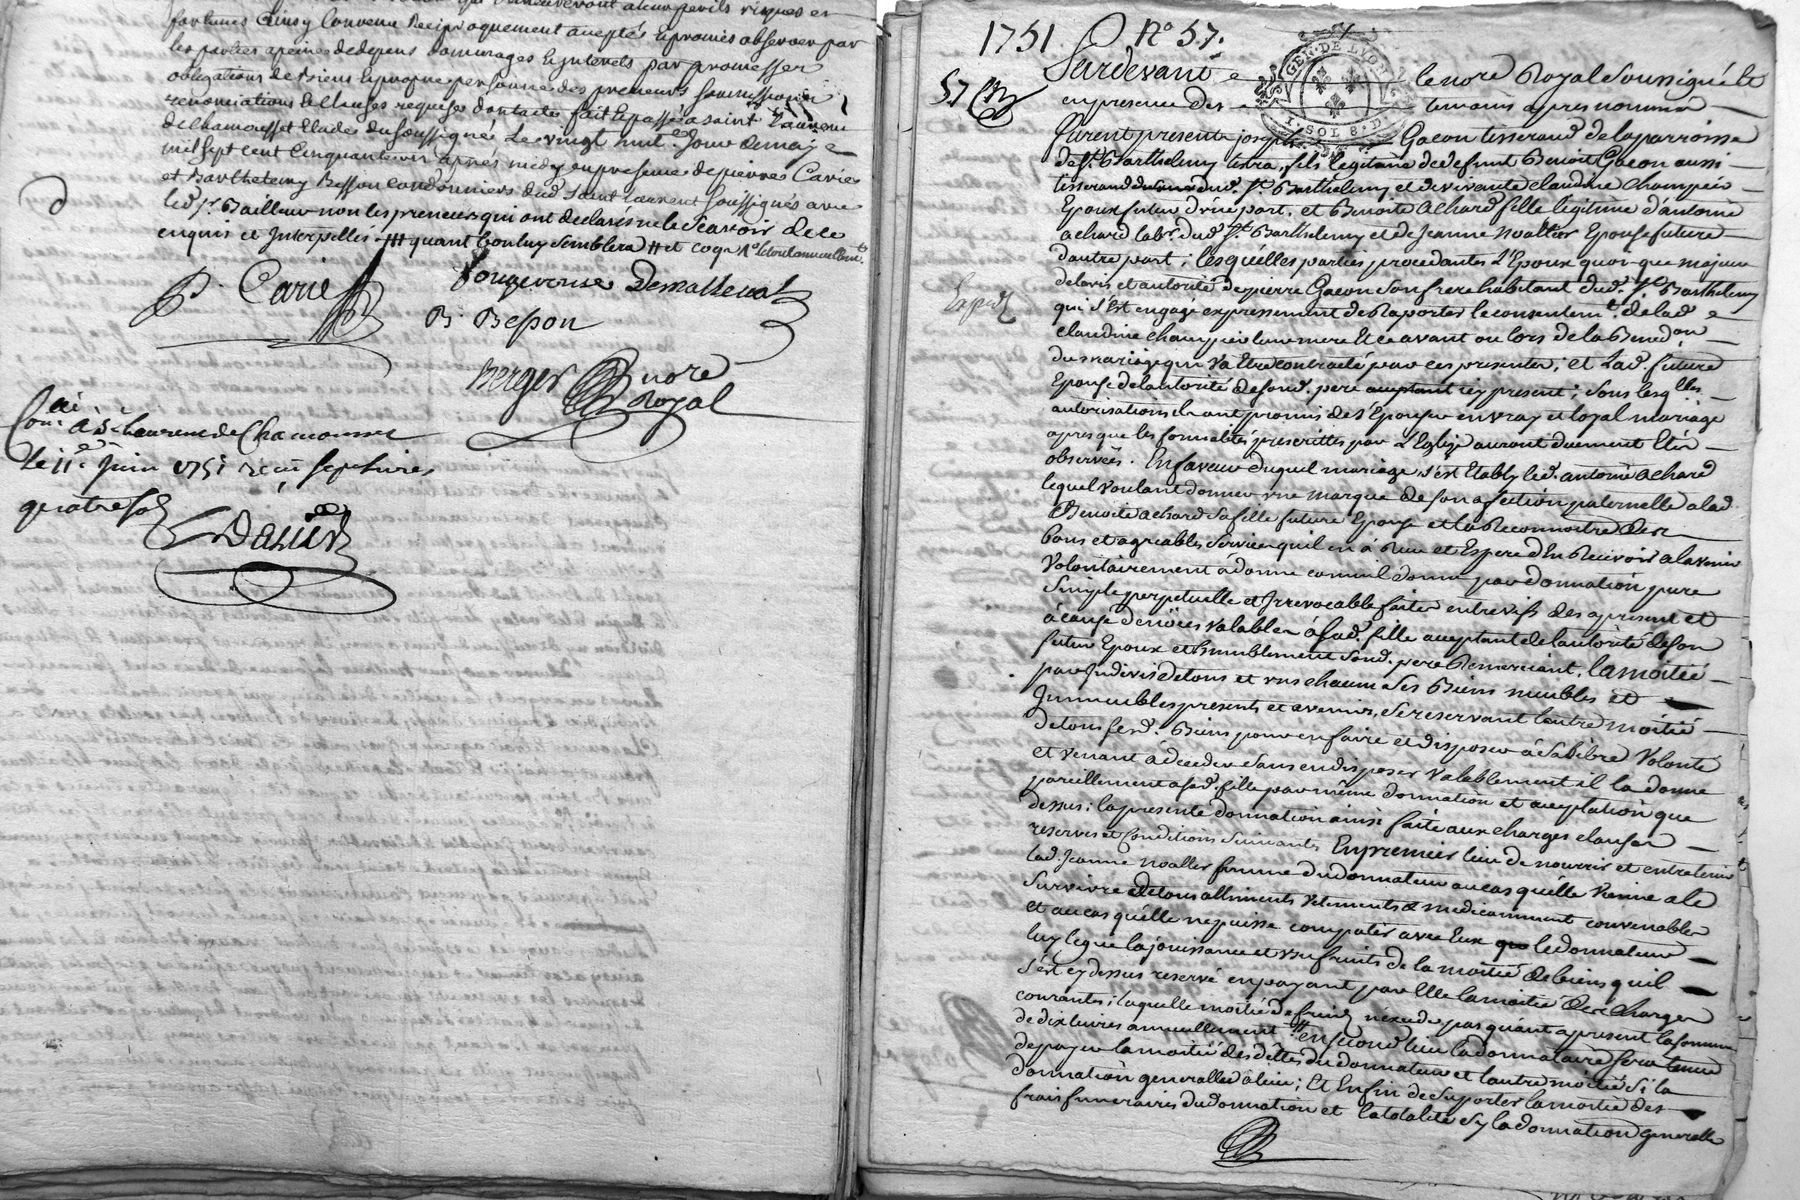 fortunes Ainsy Convenu Reciproquement acceptés & promis observer par
les parties a peine de depens dommages & jnterets par promesses
obligations de Biens & propre personne des preneurs soumissions
renonciations & Clauses requises dont acte fait & passé a saint Laurent
de chamousset Etude du soussigné Le vingt huit.e jour de may
mil sept cent Cinquante un après midy en presence de pierre Carié
et Barthelemy Besson cordonniers dud. saint Laurent soussignés avec
led. s.r Bailleur non les preneurs qui ont declarés ne le scavoir de ce
enquis et jnterpellés
P. Carié
Fougerouse Demalleval
B. Besson
Berger nore Royal
Con. a S.t Laurent de Chamousset
Le 11.e juin 1751 reçu sept livres
quatre sols
David
1751 N.o 57.
GEN. DE LYON
1. SOL 8. D.
57
Pardevant le nore Royal soussigné et
en presence des temoins apres nommés
furent presents joseph Gacon tisserand de la parroisse
de S.t Barthelemy Lestra, fils legitime de defunt Benoit Gacon aussi
tisserand dud. S.t Barthelemy et de vivante claudine Champier
Epoux futur d'une part, et Benoite Achard fille legitime d'antoine
achard lab.r dud. S.t Barthelemy et de Jeanne Noallier Epouse future
d'autre part; lesquelles parties procedantes L'Epoux quoi-que majeur
de lavis et autorité de pierre Gacon son frere habitant dud. S.t Barthelemy
Exped.
qui s'Est engagé expressement de Raporter le consentem.t de lad.
claudine champier leur mere Et ce avant ou lors de la Bened.on
du mariage qui va Etre contracté par ces presentes; et Lad. future
Epouse de lautorité de sond. pere acceptant icy present; sous lesq.lles
autorisations ils ont promis de s'Epouser en vray et loyal mariage
apres que les formalités prescrittes par L'Eglise auront duement Eté
observées. En faveur duquel mariage s'est Etably led. antoine Achard
lequel voulant donner une marque de son afection paternelle a lad.
Benoite Achard sa fille future Epouse et la Reconnoitre des
bons et agreables services qu'il en à Reçu et Espere d'En Recevoir a lavenir
volontairement à donné comme il donne par donnation pure
simple perpetuelle et Irrevocable faite entre vifs des apresent et
à cause de nôces valable à sad. fille acceptant de lautorité de son
futur Epoux et humblement sond. pere Remerciant, la moitié
par Indivis de tous et uns chacuns ses Biens meubles et
Immeubles presents et avenir, se reservant lautre moitié
de tous sesd. Biens pour en faire et disposer à sa libre volonté
et venant à deceder sans en disposer valablement il la donne
pareillement a sad. fille par même donnation et acceptation que
dessus; la presente donnation ainsi faite aux charges clauses
reserves et Conditions suivants En premier lieu de nourrir et entretenir
lad. Jeanne noallier femme du donnateur au cas qu'elle vienne a le
survivre de tous alliments vetements & medicamment convenables
et au cas qu'elle ne puisse compatir avec Eux le donnateur
luy legue la jouissance et usufruits de la moitié de biens qu'il
s'est cy dessus reservé en payant par Elle la moitié des charges
courantes; laquelle moitié de fruits n'excede pas quant a present la somme
de dix livres annuellement # en second lieu la donnataire sera tenue
de payer la moitié des dettes du donnateur et lautre moitié si la
donnation generalle à lieu; Et Enfin de suporter la moitié des
frais funeraires du donnateur et la totalité sy la donnation generalle